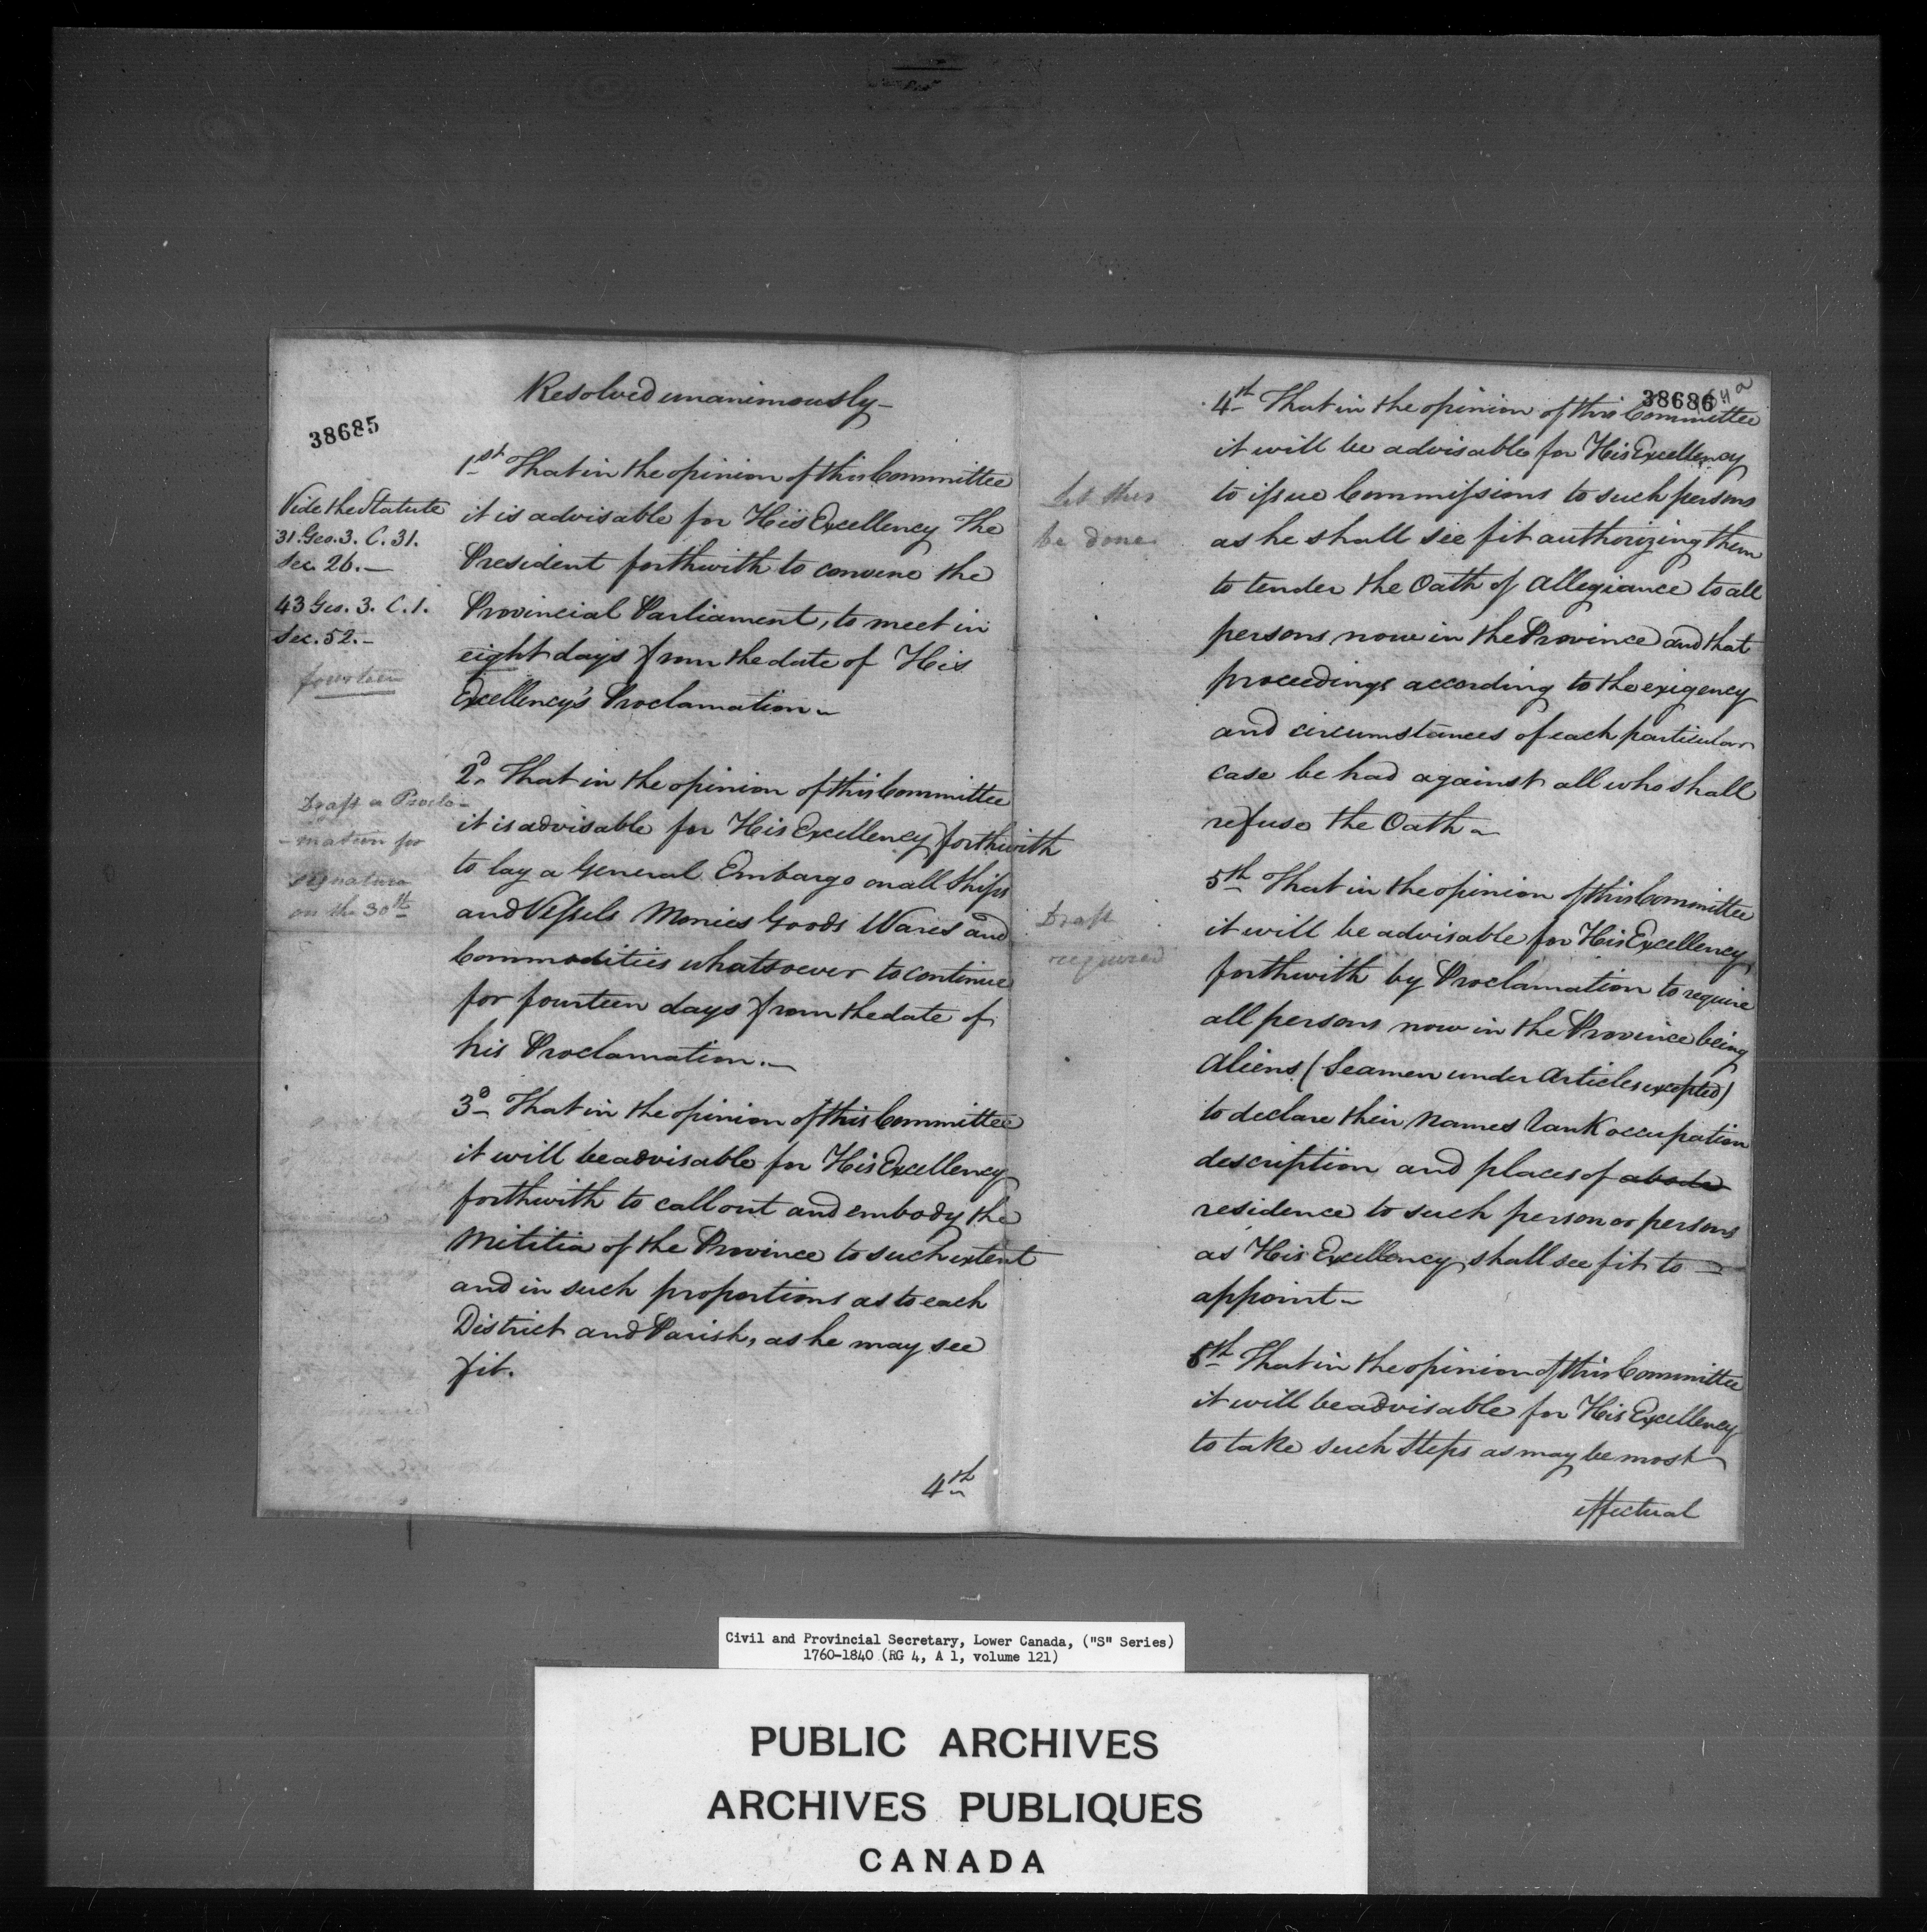 38685
Resolved unanimously—
1st That in the opinion of this Committee
it is advisable for His Excellency The
President forthwith to convene the
Provincial Parliament, to meet in
eight days from the date of His
Excellency's Proclamation—
Vide the Statute
31. Geo. 3. C. 31.
Sec. 26.—
43 Geo. 3. C. 1.
Sec. 52.—
fourteen
2d. That in the opinion of this Committee
it is advisable for His Excellency forthwith
to lay a General Embargo on all Ships
and Vessels Monies Goods Wares and
Commodities whatsoever to continue
for fourteen days from the date of
his Proclamation.—
Draft a Procla-
-mation for
signature
on the 30th
3d— That in the opinion of this Committee
it will be advisable for His Excellency
forthwith to call out and embody the
Militia of the Province to such extent
and in such proportions as to each
District and Parish, as he may see
fit.
4th
38686
4th That in the opinion of this Committee
it will be advisable for His Excellency
to issue Commissions to such persons
as he shall see fit authorizing them
to tender the Oath of Allegiance to all
persons now in the Province and that
proceedings according to the exigency
and circumstances of each particular
case be had against all who shall
refuse the Oath—
Let this
be done
5th That in the opinion of this Committee
it will be advisable for His Excellency,
forthwith by Proclamation to require
all persons now in the Province being
Aliens (Seamen under Articles excepted)
to declare their Names Rank occupation
description and places of abode
residence to such person or persons
as His Excellency shall see fit to —
appoint—
Draft
required
6th That in the opinion of this Committee
it will be advisable for His Excellency
to take such Steps as may be most
effectual
Civil and Provincial Secretary, Lower Canada, ("S" Series)
1760-1840 (RG 4, A 1, volume 121)
PUBLIC ARCHIVES
ARCHIVES PUBLIQUES
CANADA